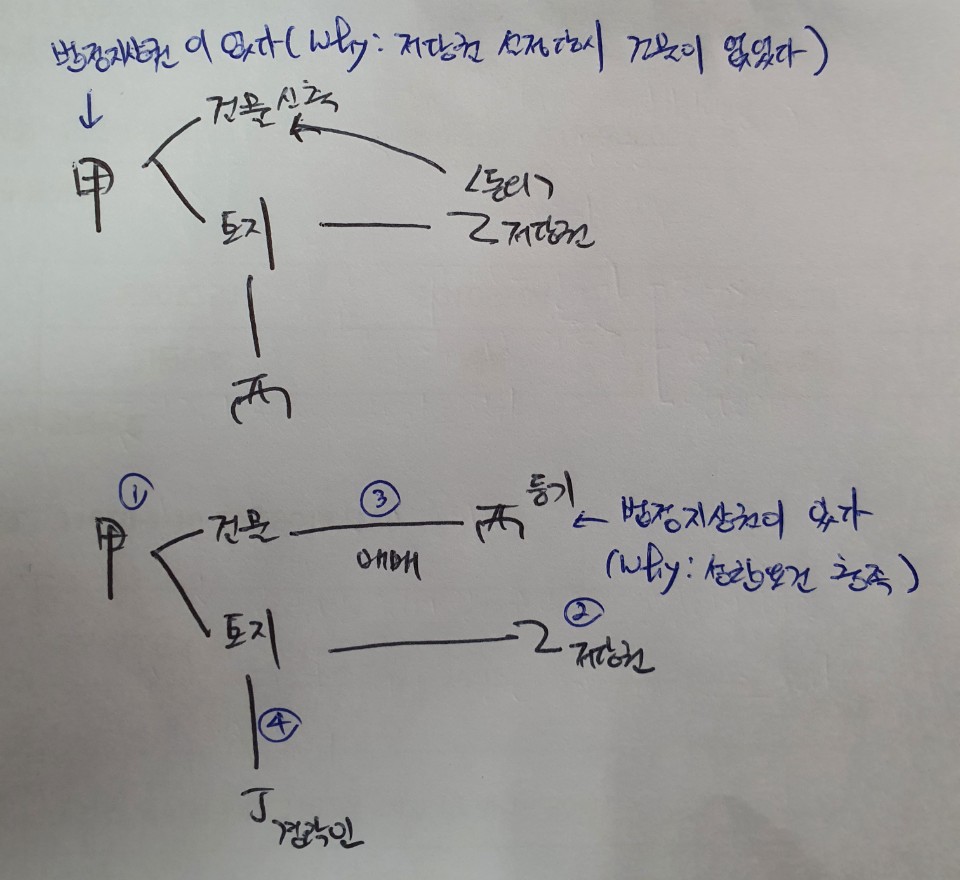 법정지상권이 없다 (Why : 저당권 설정당시 건물이 없었다)
甲
건물 신축
<동의>
토지
乙 저당권
丙
①
甲
건물
③
매매
丙 등기
← 법정지상권이 있다
(Why : 성립요건 충족)
②
토지
乙 저당권
④
丁 경락인